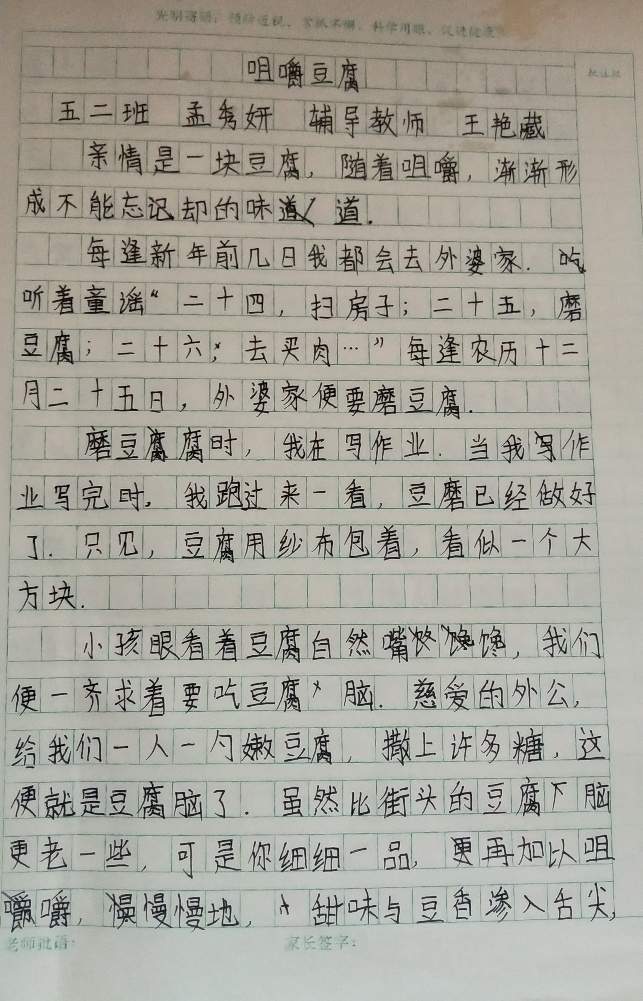 咀嚼豆腐
批注栏
五二班 孟秀妍 辅导教师 王艳藏
亲情是一块豆腐，随着咀嚼，渐渐形
成不能忘记却的味道 道.
每逢新年前几日我都会去外婆家.吃
听着童谣“二十四，扫房子；二十五，磨
豆腐；二十六；去买肉…”每逢农历十二
月二十五日，外婆家便要磨豆腐.
磨豆腐腐时，我在写作业.当我写作
业写完时.我跑过来一看，豆磨已经做好
了.只见，豆腐用纱布包着，看似一个大
方块.
小孩眼看着豆腐自然嘴馋馋，我们
便一齐求着要吃豆腐脑.慈爱的外公，
给我们一人一勺嫩豆腐，撒上许多糖，这
便就是豆腐脑了.虽然比街头的豆腐下脑
更老一些，可是你细细一品，更再加以咀
嚼嚼，慢慢慢地，甜味与豆香渗入舌尖，
老师批语：
家长签字：